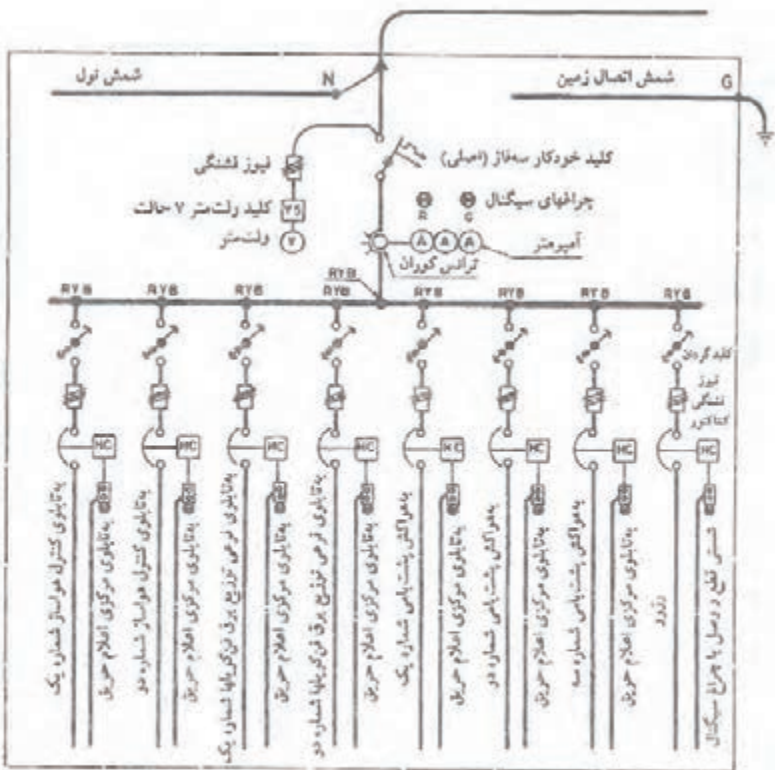 شمش نول
N
شمش اتصال زمین
G
کلید خودکار سه‌فاز (اصلی)
فیوز فشنگی
کلید ولت‌متر ۷ حالت
VS
ولت‌متر
V
چراغهای سیگنال
R
G
آمپرمتر
A A A
ترانس کوران
RYB
RYB RYB RYB RYB RYB RYB RYB RYB
کلید گردان
فیوز فشنگی
کنتاکتور
MC MC MC MC MC MC MC MC
به‌تابلوی کنترل هواساز شماره یک
به‌تابلوی مرکزی اعلام حریق
به‌تابلوی کنترل هواساز شماره دو
به‌تابلوی مرکزی اعلام حریق
به‌تابلوی فرعی توزیع برق فن‌کویلها شماره یک
به‌تابلوی مرکزی اعلام حریق
به‌تابلوی فرعی توزیع برق فن‌کویلها شماره دو
به‌تابلوی مرکزی اعلام حریق
به‌هواکش پشت‌بامی شماره یک
به‌تابلوی مرکزی اعلام حریق
به‌هواکش پشت‌بامی شماره دو
به‌تابلوی مرکزی اعلام حریق
به‌هواکش پشت‌بامی شماره سه
به‌تابلوی مرکزی اعلام حریق
رزرو
شستی قطع و وصل با چراغ سیگنال